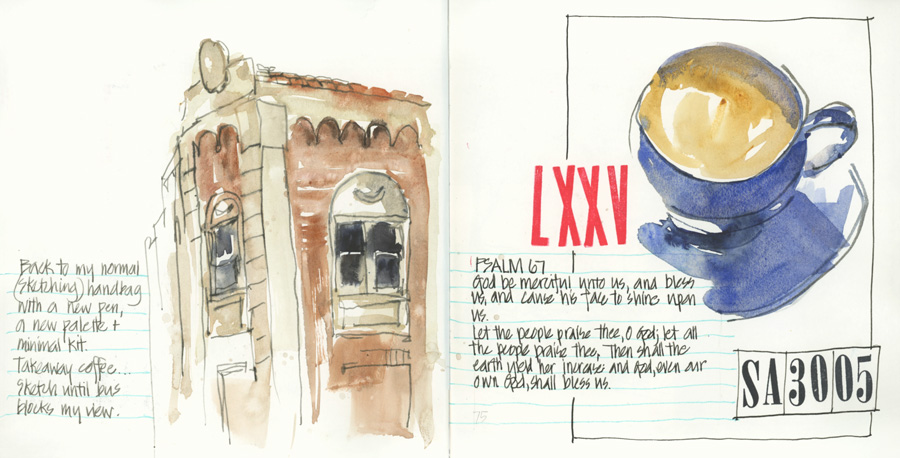 Back to my normal
(sketching) handbag
with a new pen,
a new palette +
minimal kit.
Takeaway coffee...
Sketch until bus
blocks my view.
LXXV
PSALM 67
God be merciful unto us, and bless
us, and cause his face to shine upon
us.
Let the people praise thee, O God; let all
the people praise thee, Then shall the
earth yield her increase and God, even our
own God, shall bless us.
75
SA 3005